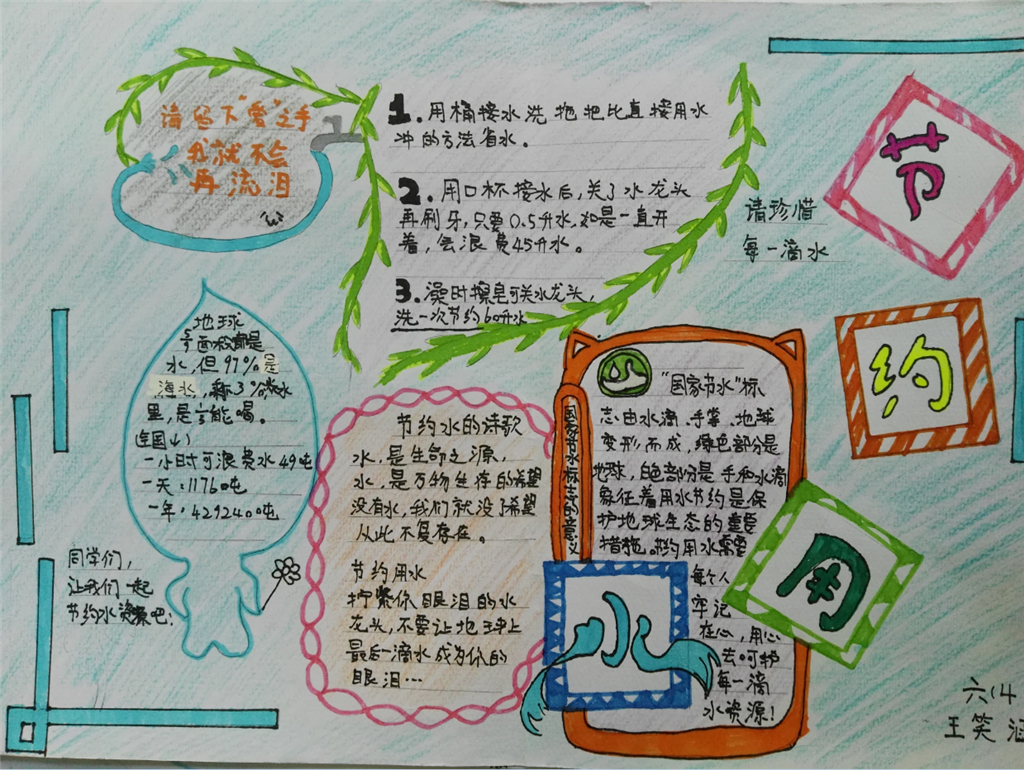 请留下"爱"之手
我就不会
再流泪
1.用桶接水洗拖把比直接用水
冲的方法省水。
2.用口杯接水后,关了水龙头
再刷牙,只要0.5升水,如是一直开
着,会浪费45升水。
3.澡时擦皂可关水龙头,
洗一次节约60升水
请珍惜
每一滴水
节
约
用
水
地球
水,但97%是
海水,
里,是
能喝。
一小时可浪费水49吨
一天:1176吨
一年:429240吨
同学们,
让我们一起
节约水资源吧!
节约水的诗歌
水,是生命之源,
水,是万物生存的希望
没有水,我们就没了希望
从此不复存在。
节约用水
拧紧你眼泪的水
龙头,不要让地球上
最后一滴水成为你的
眼泪…
国家节水标志的意义
"国家节水"标
志由水滴、手掌、地球
变形而成,绿色部分是
地球,白色部分是手和水滴
象征着用水节约是保
护地球生态的重要
措施。节约用水需要
每个人
牢记
在心,用心
去呵护
每一滴
水资源!
六(4
王笑涵